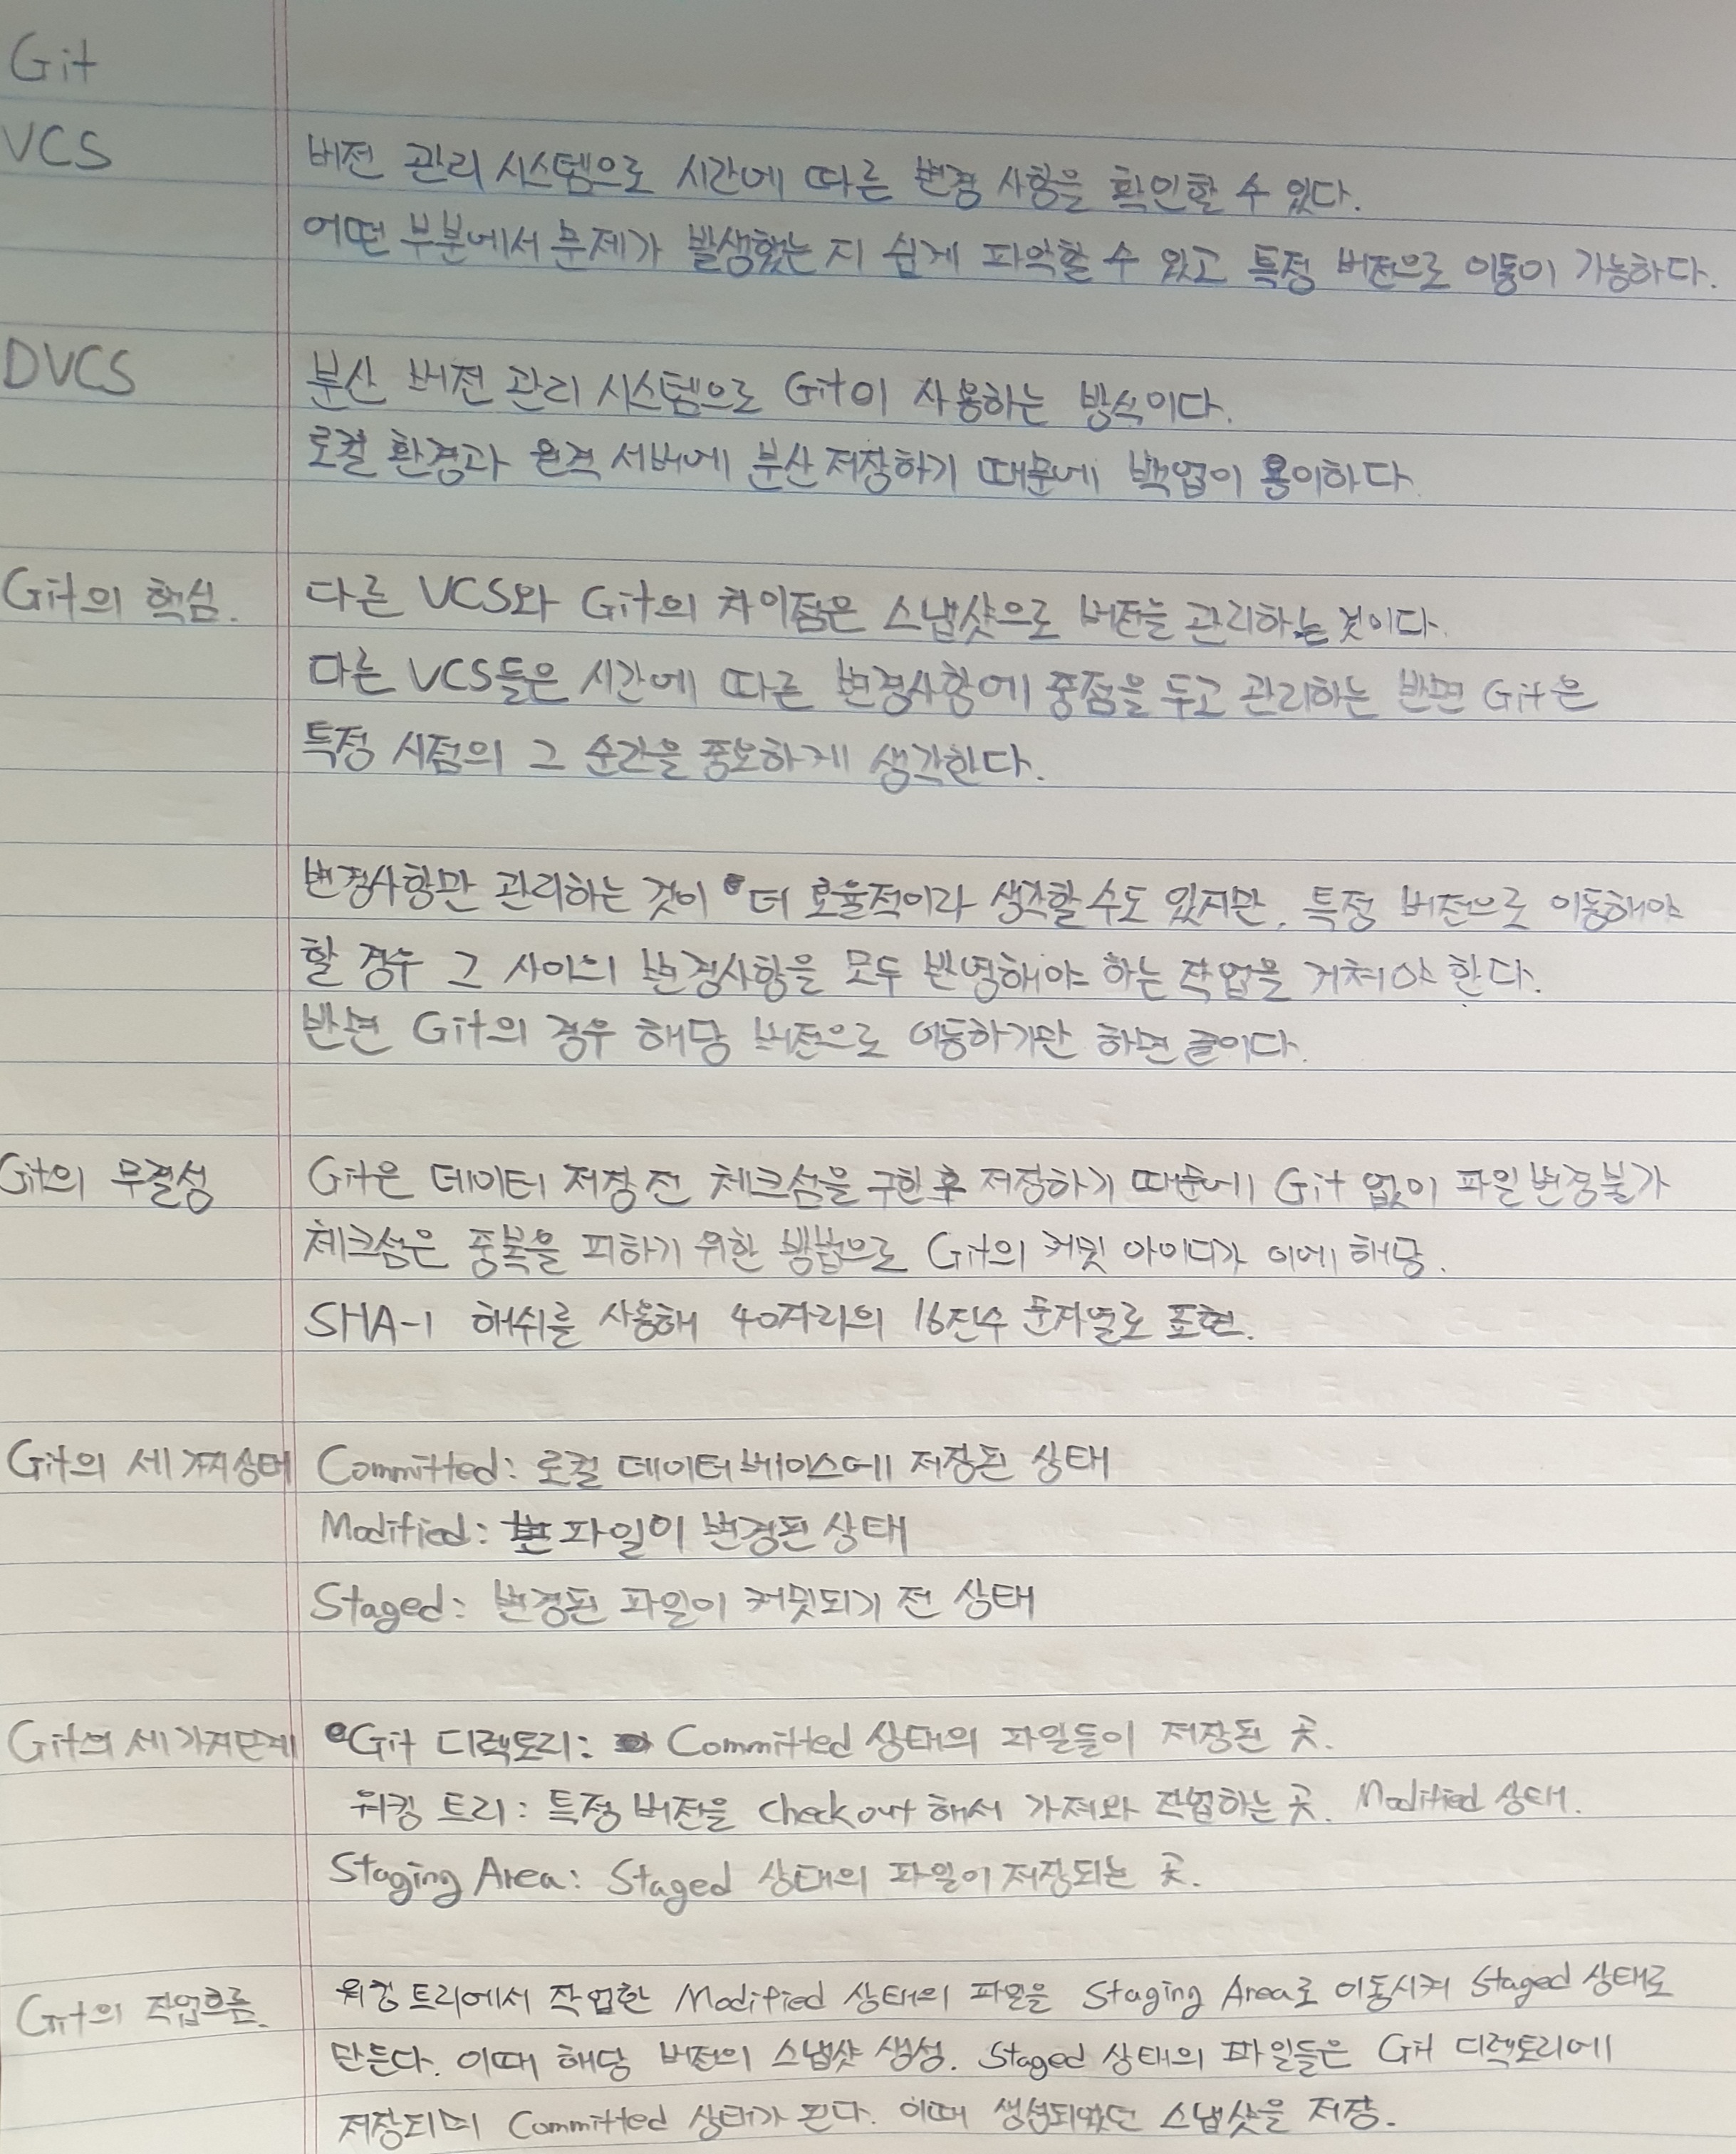 Git
VCS 버전 관리 시스템으로 시간에 따른 변경 사항을 확인할 수 있다.
어떤 부분에서 문제가 발생했는 지 쉽게 파악할 수 있고 특정 버전으로 이동이 가능하다.
DVCS 분산 버전 관리 시스템으로 Git이 사용하는 방식이다.
로컬 환경과 원격 서버에 분산 저장하기 때문에 백업이 용이하다
Git의 핵심. 다른 VCS와 Git의 차이점은 스냅샷으로 버전을 관리하는 것이다.
다른 VCS들은 시간에 따른 변경사항에 중점을 두고 관리하는 반면 Git은
특정 시점의 그 순간을 중요하게 생각한다.
변경사항만 관리하는 것이 더 효율적이라 생각할 수도 있지만, 특정 버전으로 이동해야
할 경우 그 사이의 변경사항을 모두 반영해야 하는 작업을 거쳐야 한다.
반면 Git의 경우 해당 버전으로 이동하기만 하면 끝이다.
Git의 무결성 Git은 데이터 저장 전 체크섬을 구한 후 저장하기 때문에 Git 없이 파일 변경 불가
체크섬은 중복을 피하기 위한 방법으로 Git의 커밋 아이디가 이에 해당.
SHA-1 해쉬를 사용해 40자리의 16진수 문자열로 표현.
Git의 세 가지 상태 Committed: 로컬 데이터베이스에 저장된 상태
Modified: 파일이 변경된 상태
Staged: 변경된 파일이 커밋되기 전 상태
Git의 세 가지 단계 Git 디렉토리: Committed 상태의 파일들이 저장된 곳.
워킹 트리: 특정 버전을 checkout 해서 가져와 작업하는 곳. Modified 상태.
Staging Area: Staged 상태의 파일이 저장되는 곳.
Git의 작업흐름. 워킹 트리에서 작업한 Modified 상태의 파일을 Staging Area로 이동시켜 Staged 상태로
만든다. 이때 해당 버전의 스냅샷 생성. Staged 상태의 파일들은 Git 디렉토리에
저장되며 Committed 상태가 된다. 이때 생성되었던 스냅샷을 저장.